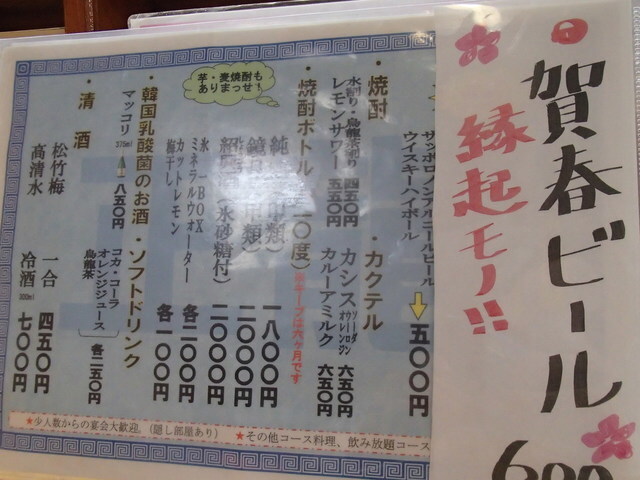 賀春ビール
600
縁起モノ!!
サッポロノンアルコールビール
ウイスキーハイボール
五〇〇円
・焼酎
水割り・烏龍茶割り 四五〇円
レモンサワー 五五〇円
・カクテル
カシス ソーダ オレンジ ウーロン 六五〇円
カルーアミルク 六五〇円
・焼酎ボトル
二〇度)
※キープは六ヶ月です
芋・麦焼酎も
ありまっせ!
一八〇〇円
二〇〇〇円
(氷砂糖付) 二〇〇〇円
氷一BOX
ミネラルウォーター 各二〇〇円
カットレモン
梅干し 各一〇〇円
・韓国乳酸菌のお酒
マッコリ 375ml 八五〇円
・ソフトドリンク
コカ・コーラ
オレンジジュース
烏龍茶
各二五〇円
・清酒
松竹梅 一合 四五〇円
高清水 冷酒 300ml 七〇〇円
★少人数からの宴会大歓迎。(隠し部屋あり) ★その他コース料理、飲み放題コース